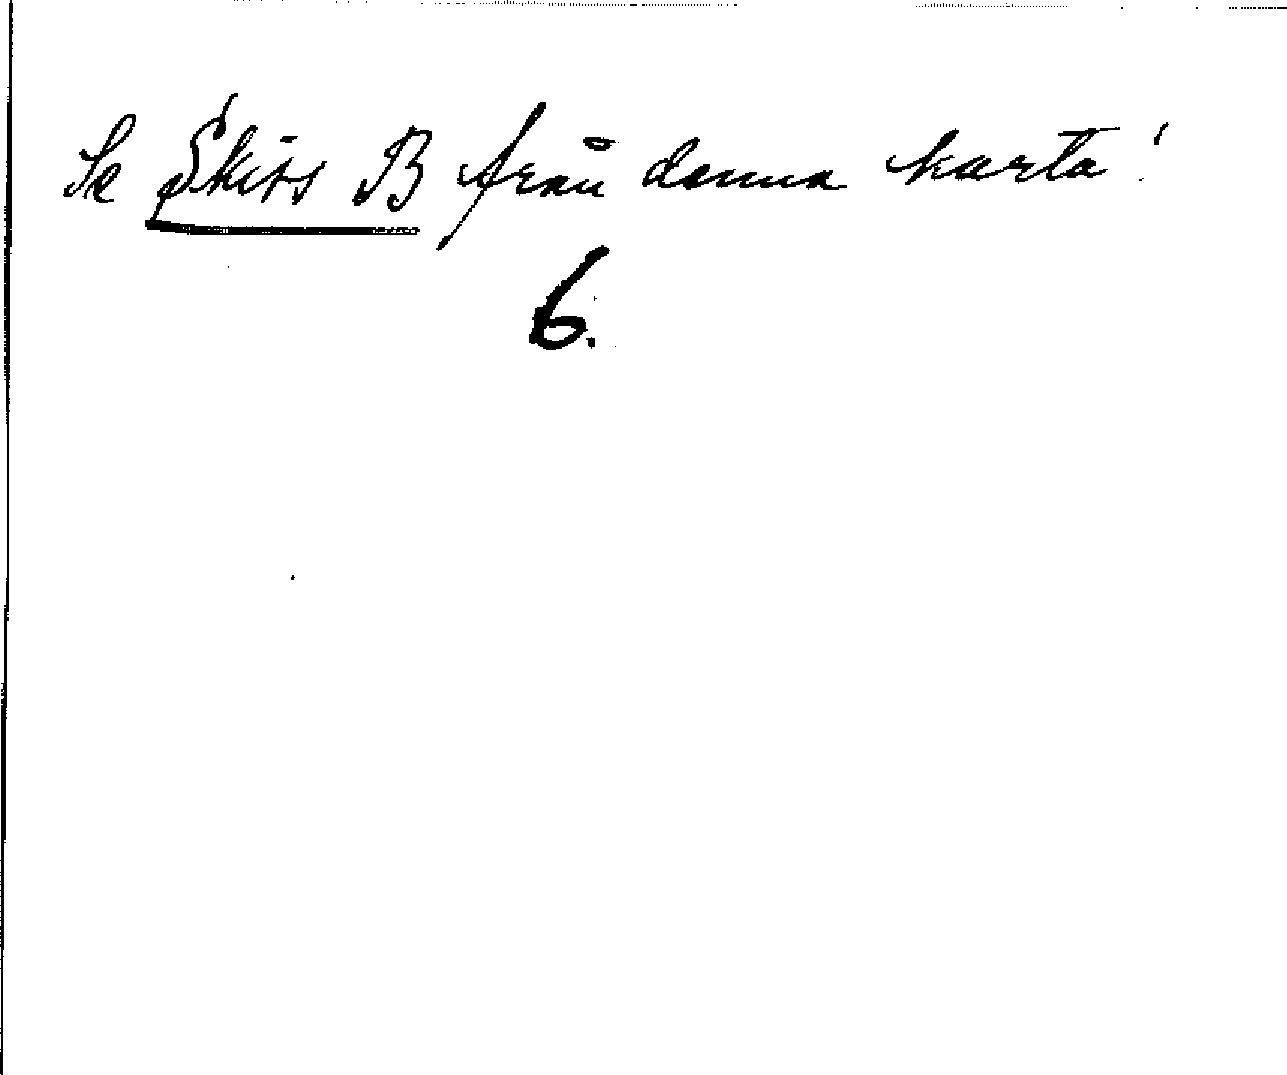 Se Skiss B från denna karta!
6.